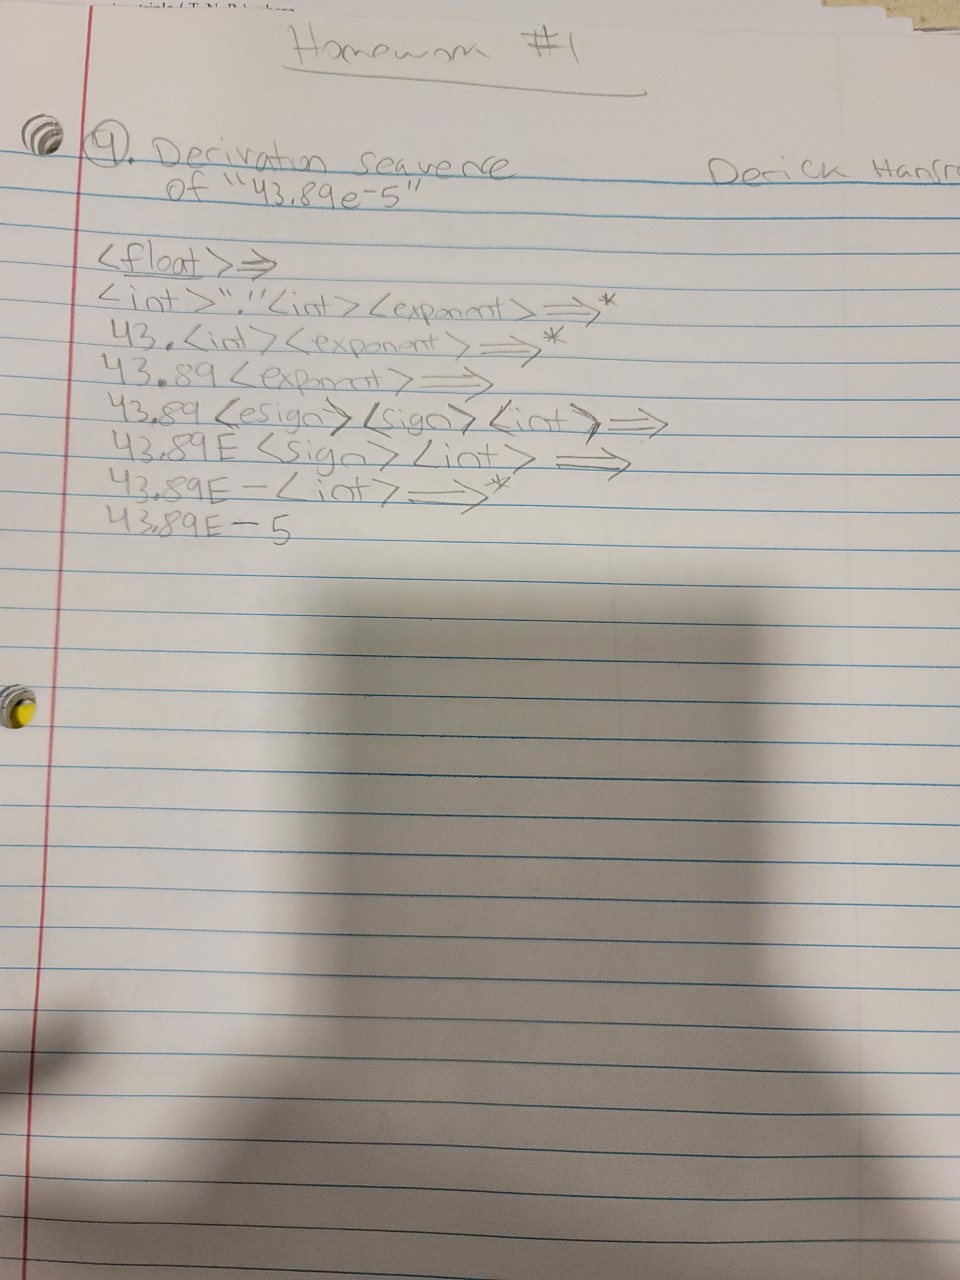 Homework #1
9. Derivation sequence
Derick
of "43.89e-5"
<float>⇒
<int>"."<int><exponent>⇒*
43.<int><exponent>⇒*
43.89<exponent>⇒
43.89<esign><sign><int>⇒
43.89E<sign><int>⇒
43.89E-<int>⇒*
43.89E-5